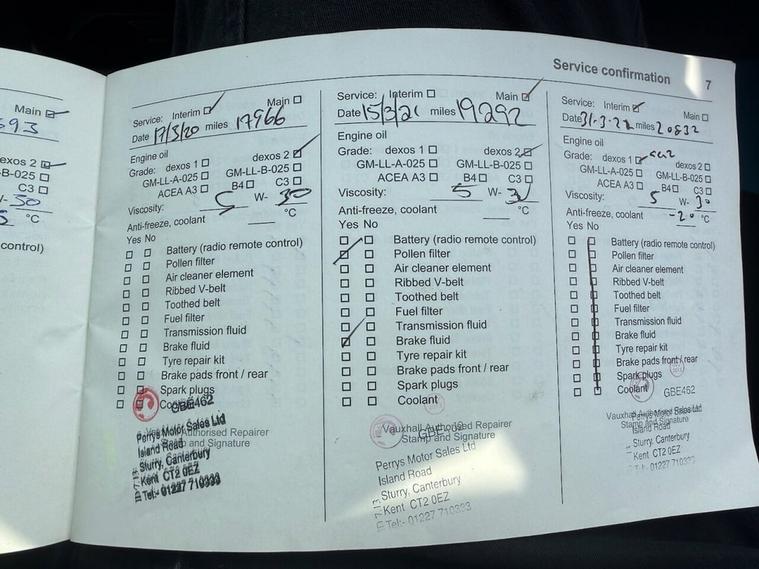 Service confirmation 7
Main ☑
dexos 2 ☑
C3 ☐
W- 30
°C
control)
Service: Interim ☑ Main ☐
Date 17/3/20 miles 17966
Engine oil
Grade: dexos 1 ☐ dexos 2 ☑
GM-LL-A-025 ☐ GM-LL-B-025 ☐
ACEA A3 ☐ B4 ☐ C3 ☐
Viscosity: 5 W- 30
Anti-freeze, coolant °C
Yes No
Battery (radio remote control)
Pollen filter
Air cleaner element
Ribbed V-belt
Toothed belt
Fuel filter
Transmission fluid
Brake fluid
Tyre repair kit
Brake pads front / rear
Spark plugs
GBE462
Perrys Motor Sales Ltd
Authorised Repairer
Island Road
and Signature
Sturry, Canterbury
Kent CT2 0EZ
Tel:- 01227 710333
Service: Interim ☐ Main ☑
Date 15/3/21 miles 19292
Engine oil
Grade: dexos 1 ☐ dexos 2 ☑
GM-LL-A-025 ☐ GM-LL-B-025 ☐
ACEA A3 ☐ B4 ☐ C3 ☐
Viscosity: 5 W-
Anti-freeze, coolant °C
Yes No
Battery (radio remote control)
Pollen filter
Air cleaner element
Ribbed V-belt
Toothed belt
Fuel filter
Transmission fluid
Brake fluid
Tyre repair kit
Brake pads front / rear
Spark plugs
Coolant
Vauxhall Authorised Repairer
Stamp and Signature
Perrys Motor Sales Ltd
Island Road
Sturry, Canterbury
Kent CT2 0EZ
Tel:- 01227 710333
Service: Interim ☑ Main ☐
Date 31-3-22 miles 20832
Engine oil
Grade: dexos 1 ☑ dexos 2 ☐
GM-LL-A-025 ☐ GM-LL-B-025 ☐
ACEA A3 ☐ B4 ☐ C3 ☐
Viscosity: 5 W- 30
Anti-freeze, coolant -20 °C
Yes No
Battery (radio remote control)
Pollen filter
Air cleaner element
Ribbed V-belt
Toothed belt
Fuel filter
Transmission fluid
Brake fluid
Tyre repair kit
Brake pads front / rear
Spark plugs
Coolant
GBE462
Vauxhall Authorised Repairer
Stamp and Signature
Perrys Motor Sales Ltd
Island Road
Sturry, Canterbury
Kent CT2 0EZ
Tel:- 01227 710333